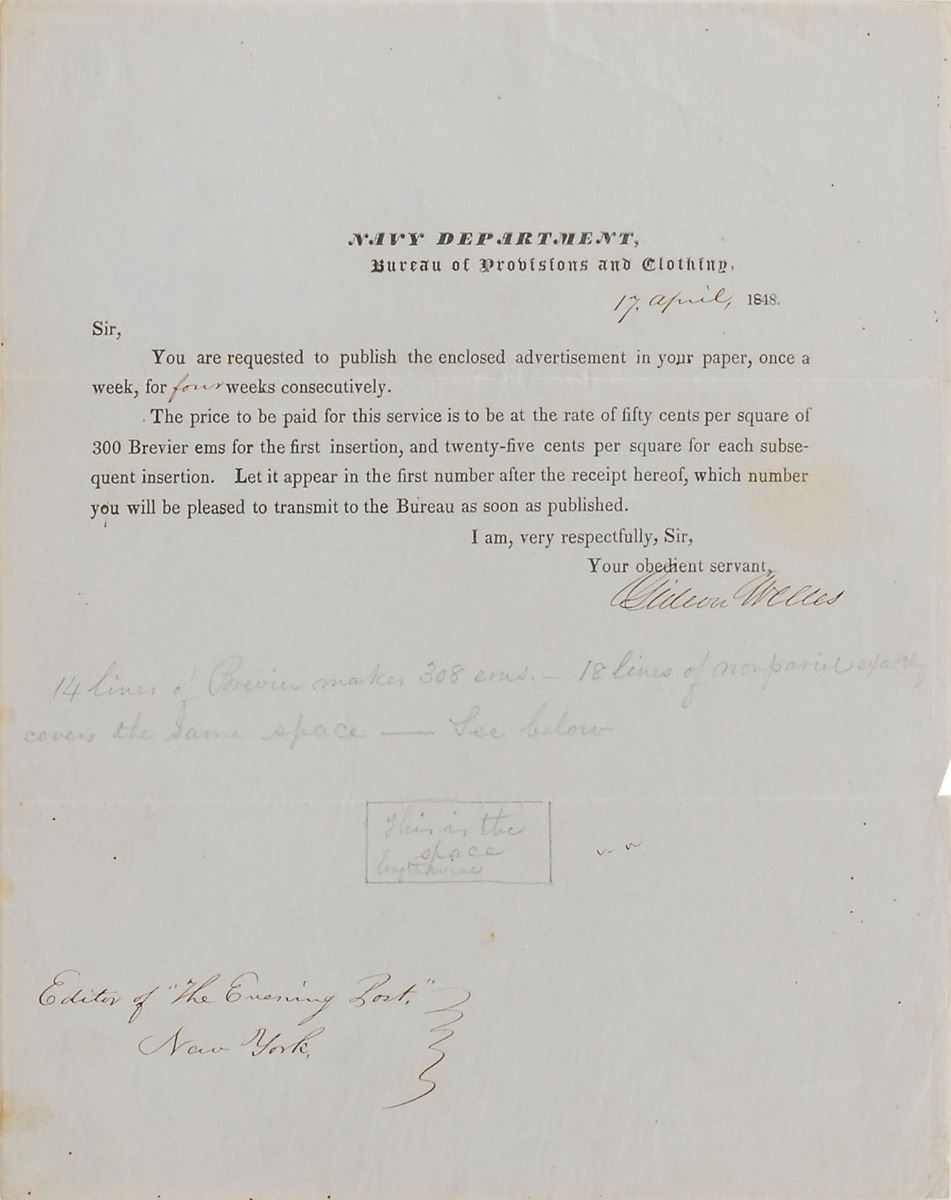 NAVY DEPARTMENT,
Bureau of Provisions and Clothing,
17. April, 1848.
Sir,
You are requested to publish the enclosed advertisement in your paper, once a
week, for four weeks consecutively.
The price to be paid for this service is to be at the rate of fifty cents per square of
300 Brevier ems for the first insertion, and twenty-five cents per square for each subse-
quent insertion. Let it appear in the first number after the receipt hereof, which number
you will be pleased to transmit to the Bureau as soon as published.
I am, very respectfully, Sir,
Your obedient servant,
Gideon Welles
14 lines of Brevier makes 308 ems. — 18 lines of nonpariel exactly
covers the same space — See below
This is the
space
Editor of "The Evening Post,"
New York.